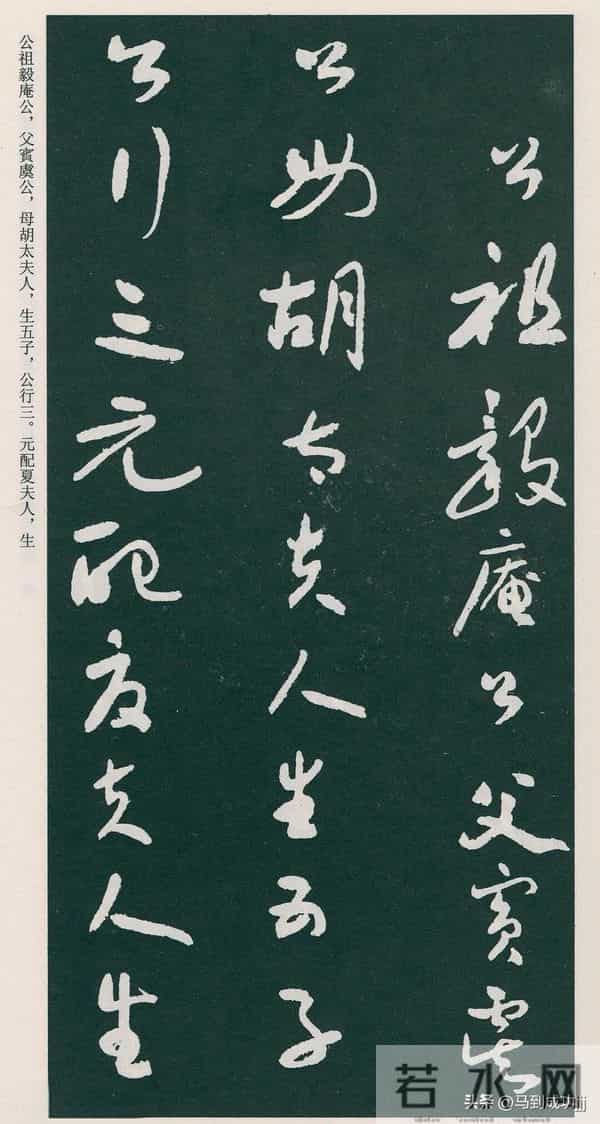 公祖毅庵公父賓虞
公母胡太夫人生五子
公行三元配夏夫人生
公祖毅庵公，父賓虞公，母胡太夫人，生五子，公行三。元配夏夫人，生
若水网
头条 @马到成功jjj